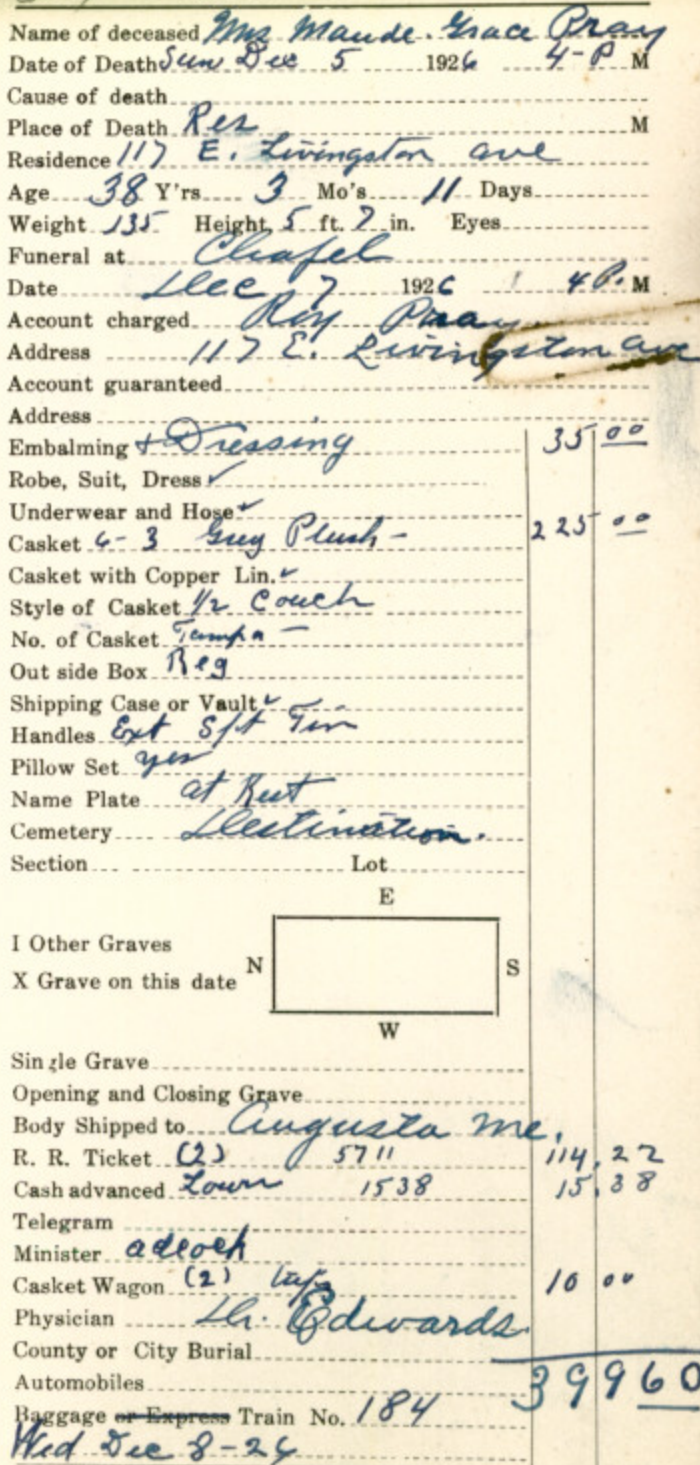 Name of deceased Mrs Maude. Grace Pray
Date of Death Sun Dec 5 1926 4-P M
Cause of death
Place of Death Res M
Residence 117 E. Livingston ave
Age 38 Y'rs 3 Mo's 11 Days
Weight 135 Height, 5 ft. 7 in. Eyes
Funeral at Chapel
Date Dec 7 1926 4 P. M
Account charged Roy Pray
Address 117 E. Livingston ave
Account guaranteed
Address
Embalming + Dressing 35 00
Robe, Suit, Dress ✓
Underwear and Hose ✓
Casket 6-3 Grey Plush - 225 00
Casket with Copper Lin. ✓
Style of Casket 1/2 Couch
No. of Casket Tampa -
Out side Box Reg
Shipping Case or Vault ✓
Handles Ext Tin
Pillow Set yes
Name Plate at Rest
Cemetery Destination.
Section Lot
E
I Other Graves
N S
X Grave on this date
W
Single Grave
Opening and Closing Grave
Body Shipped to Augusta Me.
R. R. Ticket (2) 5711 114.22
Cash advanced 1538 15.38
Telegram
Minister adcock
Casket Wagon (2) 10 00
Physician Dr. Edwards
County or City Burial
Automobiles 399 60
Baggage or Express Train No. 184
Wed Dec 8-26